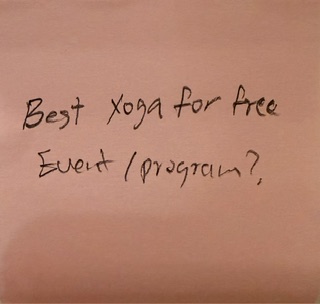 Best Yoga for free
Event / program?